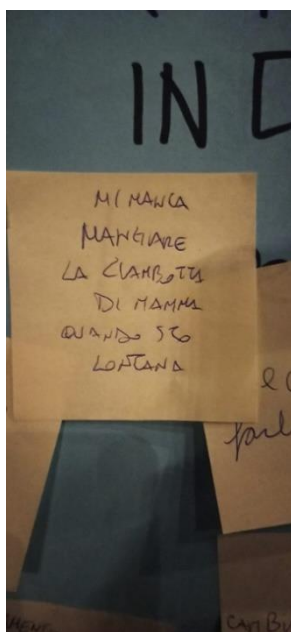 IN D
MI MANCA
MANGIARE
LA CIAMBOTTA
DI MAMMA
QUANDO STO
LONTANA